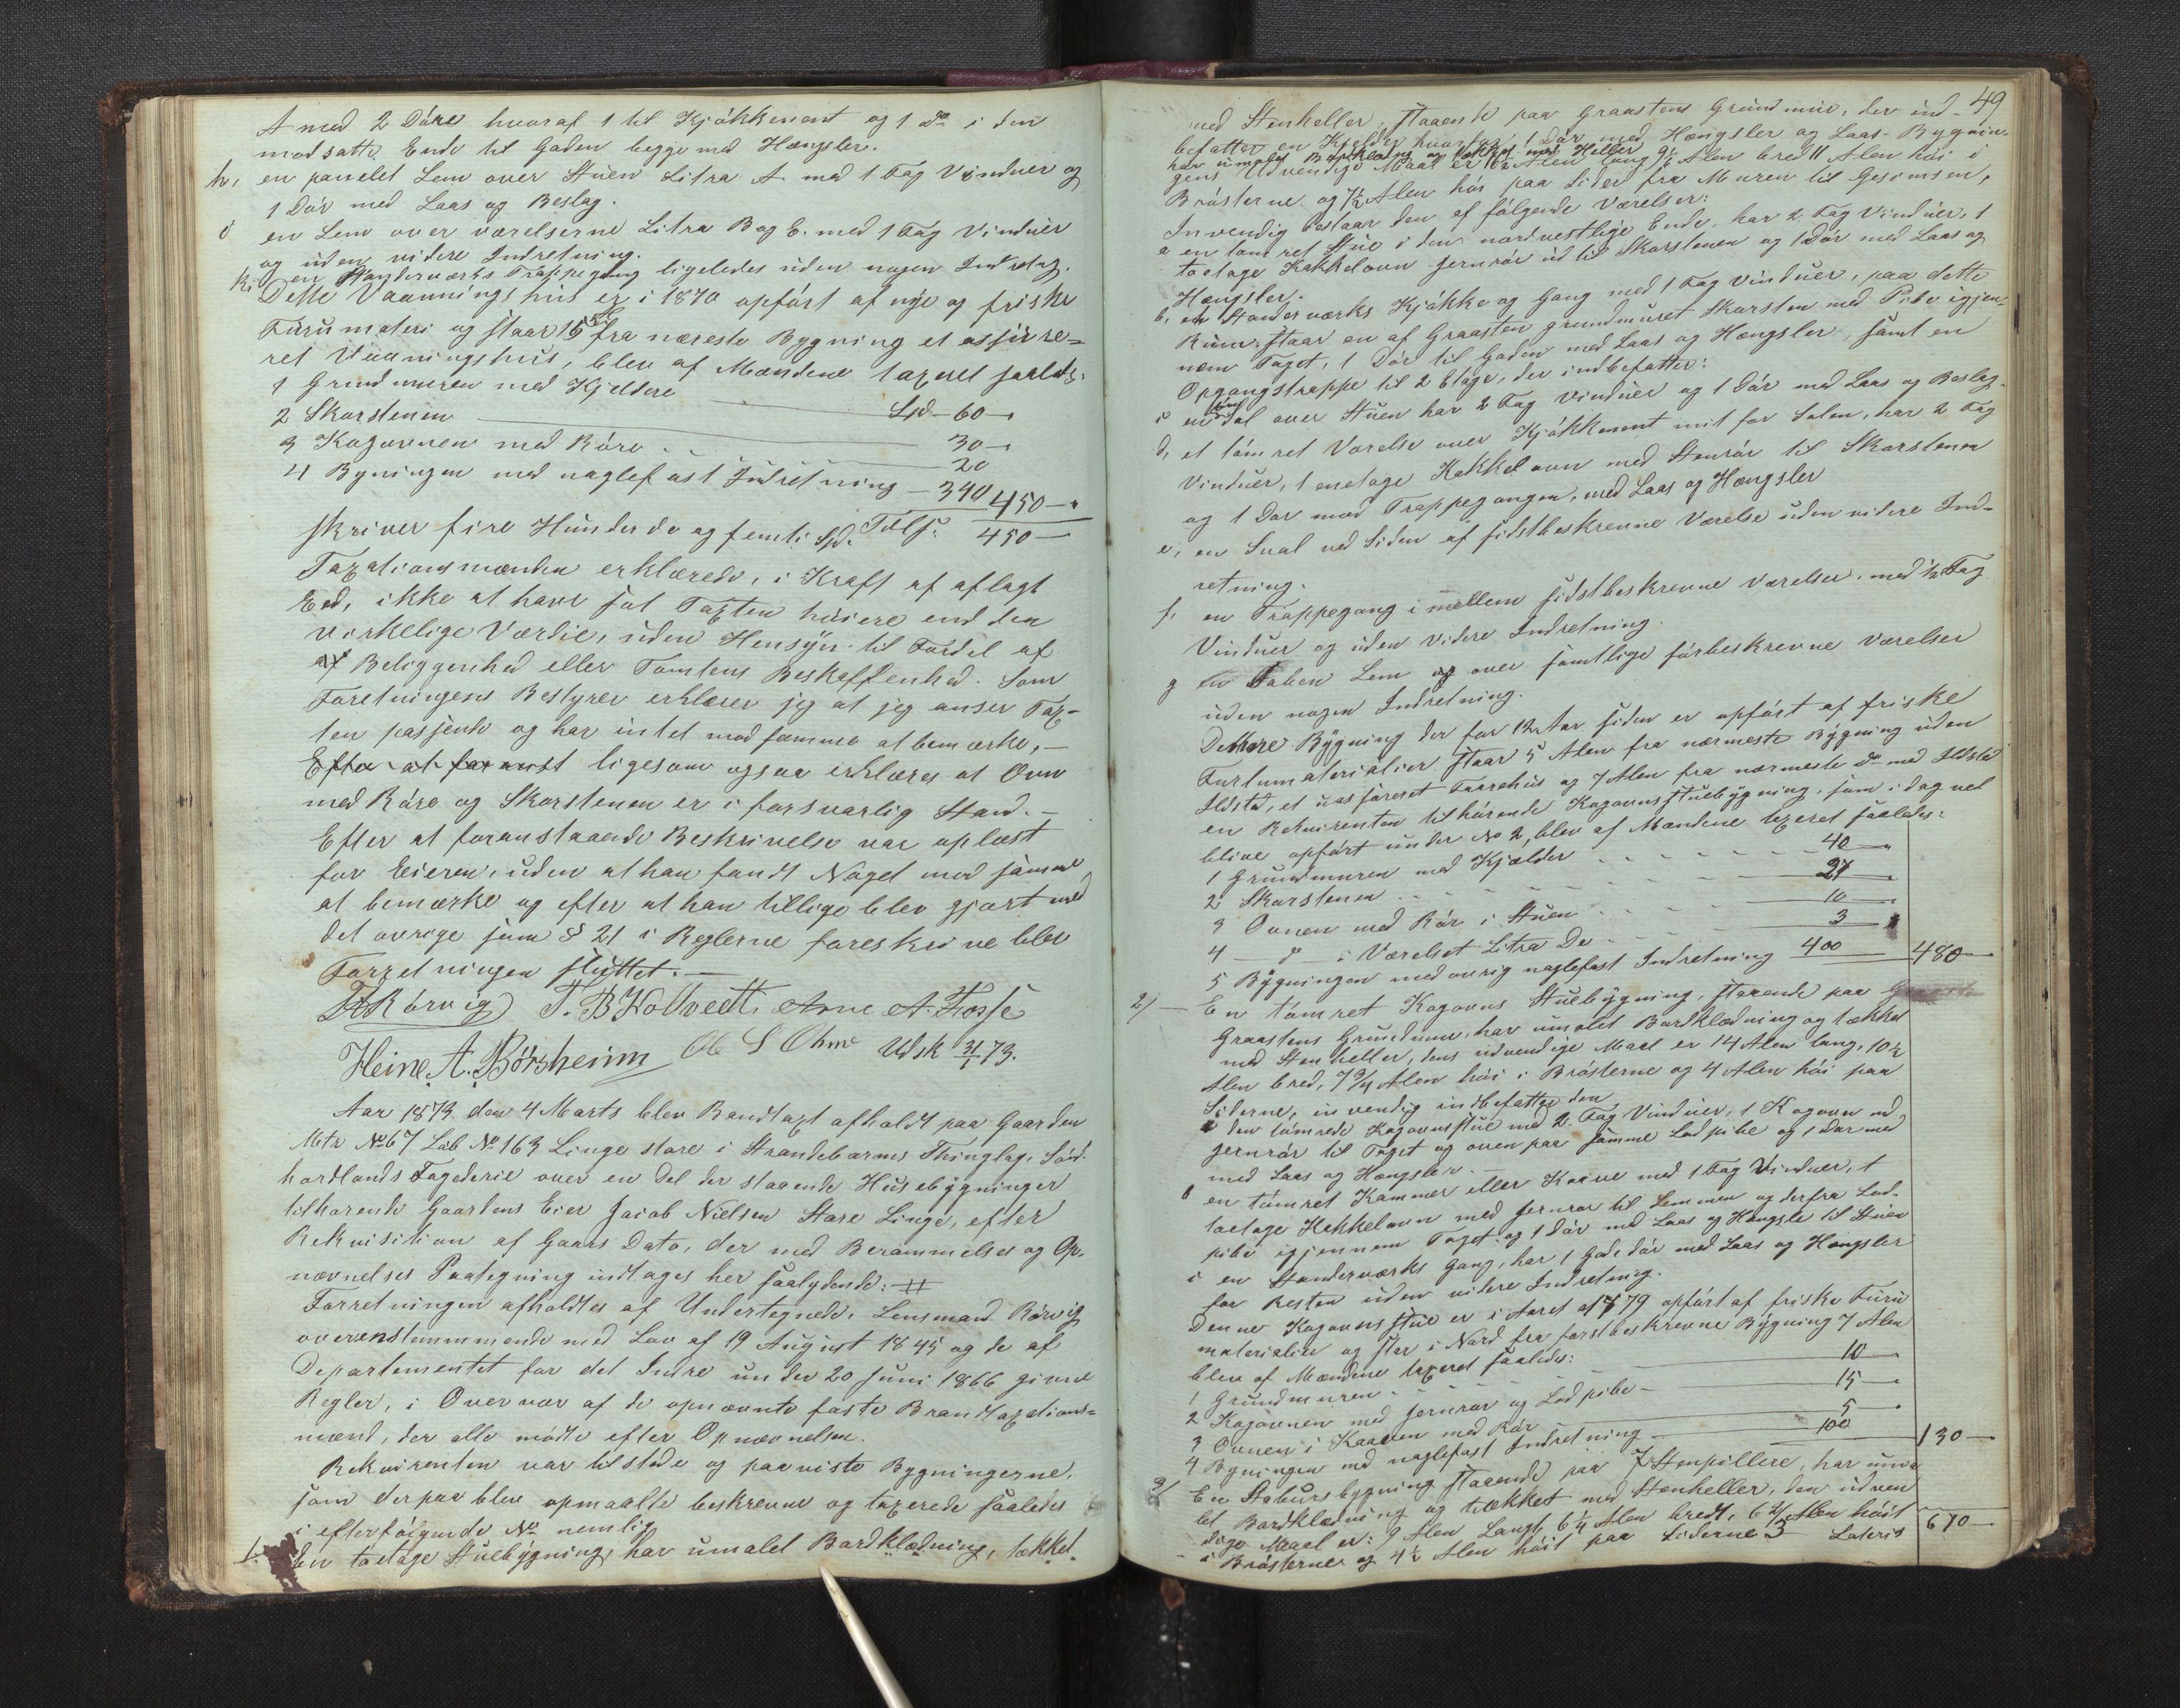 A med 2 Döre hvoraf 1 til Kjökkenent og 1 do i den
modsatte Ende til Gaden begge med Hængsler.
h, en panelet Lem over Stuen Litra A med 1 Fag Vinduer og
1 Dör med Laas og Beslag.
i en Lem over værelserne Litra B og C. med 1 Fag Vinduer
og uden videre Indretning.
k, en Standerværks Trappegang ligeledes uden nogen Indretng.
Dette Vaaningshus er i 1870 opfört af nye og friske
Furumateri og staar 15 fra næreste Bygning et assure=
ret Vaaningshus, blev af Mændene taxeret saaleds.
1 Grundmuren med Kjeldere Spd - 60 -
2 Skorstenen 30 -
3 Kogovnen med Röre 20
4 Byningen med naglefast Indretning - 340 450 -
skriver fire Hundrede og femti Spd. Tills. 450 -
Taxationsmændene erklærede, i Kraft af aflagt
Eed, ikke at have sat Taxten höiere end den
virkelige Værdie, uden Hensÿn til Fordel af
af Beliggenhed eller Tomtens Beskaffenhed. Som
Foretningens Bestyrer erklærer jeg at jeg anser Tax-
ten passende og har intet mod samme at bemærke, -
Efter at foranst ligesom ogsaa erklæres at Ovn
med Röre og Skorstenen er i forsvarlig Stand. -
Efter at foranstaaende Beskrivelse var oplæst
for Eieren, uden at han fandt Noget mod samme
at bemærke og efter at han tillige blev gjort med
det övrige som § 21 i Reglerne foreskrive blev
Forretningen sluttet. -
Rörvig T. B Holtvedt Arne A. Fosse
Heine A. Börsheim Ole S Ohme Udsk 31/1 73.
Aar 1873 den 4 Marts blev Brandtaxt afholdt paa Gaarden
Mtr No 67 Löb No 163 Linge store i Strandebarms Thinglag, Sönd-
hordlands Fogederie over en Del der staaende Husebÿgninger
tilhörende Gaardens Eier Jacob Nielsen Store Linge, efter
Rekvisition af Gaars Dato, der med Berammelses og Op-
nævnelses Paategning indtages her saalydende:
Forretningen afholdtes af Undertegnede, Lensmand Rörvig
overenstemmende med Lov af 19 August 1845 og de af
Departementet for det Indre under 20 Juni 1866 givne
Regler, i Overvær af de opnævnte faste Brandtaxations=
mænd, der alle mödte efter Opnævnelsen.
Rekvirenten var tilstede og paaviste Bygningerne,
som derpaa blev opmaalte beskrevne og taxerede saaledes
i efterfölgende No nemlig
1. En toetage Stuebÿgning, har umalet Bordklædning, tækket
49
med Stenheller, staaende paa Graastens Grundmur, der ind-
befatter en Kjelder hvortil 1 Dör med Hængsler og Laas. Bygnin-
har umalet Bordklædning og tækket med Heller
gens Udvendige Maal er 16½ Alen lang 9½ Alen bred 11 Alen höi i
Brösterne og 7½ Alen höi paa Sider fra Muren til Gesimsen,
Invendig bestaar den af fölgende Værelser:
a en tömret Stue i den nordvestlige Ende, har 2 Fag Vinduer, 1
toetage Kakkelovn Jernrör ud til Skorstenen og 1 Dör med Laas og
Hængsler.
b, en Standerværks Kjökke og Gang med 1 Fag Vinduer, paa dette
Rum staar en af Graasten grundmuret Skorsten med Pibe igjen-
nem Taget, 1 Dör til Gaden med Laas og Hængsler, samt en
Opgangstrappe til 2 Etage, der indbefatter:
c en Sal over Stuen har 2 Fag Vinduer og 1 Dör med Laas og Beslag.
d, et tömret Værelse over Kjökkenent mit for Salen, har 2 Fag
Vinduer, 1 enetage Kakkelovn med Stenrör til Skorstenen
og 1 Dör mod Trappegangen, med Laas og Hængsler
e, en Sval ved Siden af sidstbeskrevne Værelse uden videre Ind-
retning.
f, en Trappegang i mellem sidstbeskrevne værelser, med ½ Fag
Vinduer og uden videre Indretning.
g en Aaben Lem og over samtlige förbeskrevne værelser
uden nogen Indretning.
Denne Bÿgning der for 12 Aar siden er opfört af friske
Furumaterialier staar 5 Alen fra nærmeste Bÿgning uden
Ildsted, et uassureret Faarehus og 7 Alen fra nærmeste do med Ildsted
en Rekvirenten tilhörende Kogovnsstuebÿgning, som i dag vel
blive opfört under No 2, blev af Mændene taxeret saaledes:
1 Grundmuren med Kjælder 40 -
2 Skorstenen 27
3 Ovnen med Rör i Stuen 10 -
4 - d - i Værelset Litra De 3
5 Bÿgningen med övrig naglefast Indretning 400 480 -
2) - En tömret Kogovns Stuebÿgning, staaende paa
Graastens Grundmur, har umalet Bordklædning og tækket
med Stenheller, dens udvendige Maal er 14 Alen lang, 10½
Alen bred, 7¾ Alen höi i Brösterne og 4 Alen höi paa
Siderne, invendig indbefatter den
a den tömrede Kogovnsstue med 2 Fag Vinduer, 1 Kogovn med
Jernrör til Taget og oven paa samme Lodpibe og 1 Dör med
med Laas og Hængsler. -
b en tömret Kammer eller Kaave med 1 Fag Vinduer, 1
toetage Kakkelovn med Jernrör til Lemmen og derfra Lod-
pibe igjennem Taget og 1 Dör med Laas og Hængsle til Stuen
c en Standerværks Gang, har 1 Gadedör med Laas og Hængsler
for Resten uden videre Indretning.
Denne Kogovnsstue er i Aaret 1779 opfört af friske Furu
materialier og staar i Nord fra förstbeskrevne Bÿgning 7 Alen
blev af Mændene taxeret saaledes:
1 Grundmuren 10
2 Kogovnen med Jernrör og Lodpibe - 15 -
3 Ovnen i Kaaven med Rör 5 -
4 Bÿningen med naglefast Indretning 100 130 -
3) En Stabursbygning staaende paa 7 Stenpillere, har uma
let Bordklædning og tækket med Stenheller, den udven
dige Maal er: 9 Alen Langt, 6¼ Alen bredt, Alen höit
i Brösterne og 4½ Alen höit paa Siderne 3 Lateris 610 -